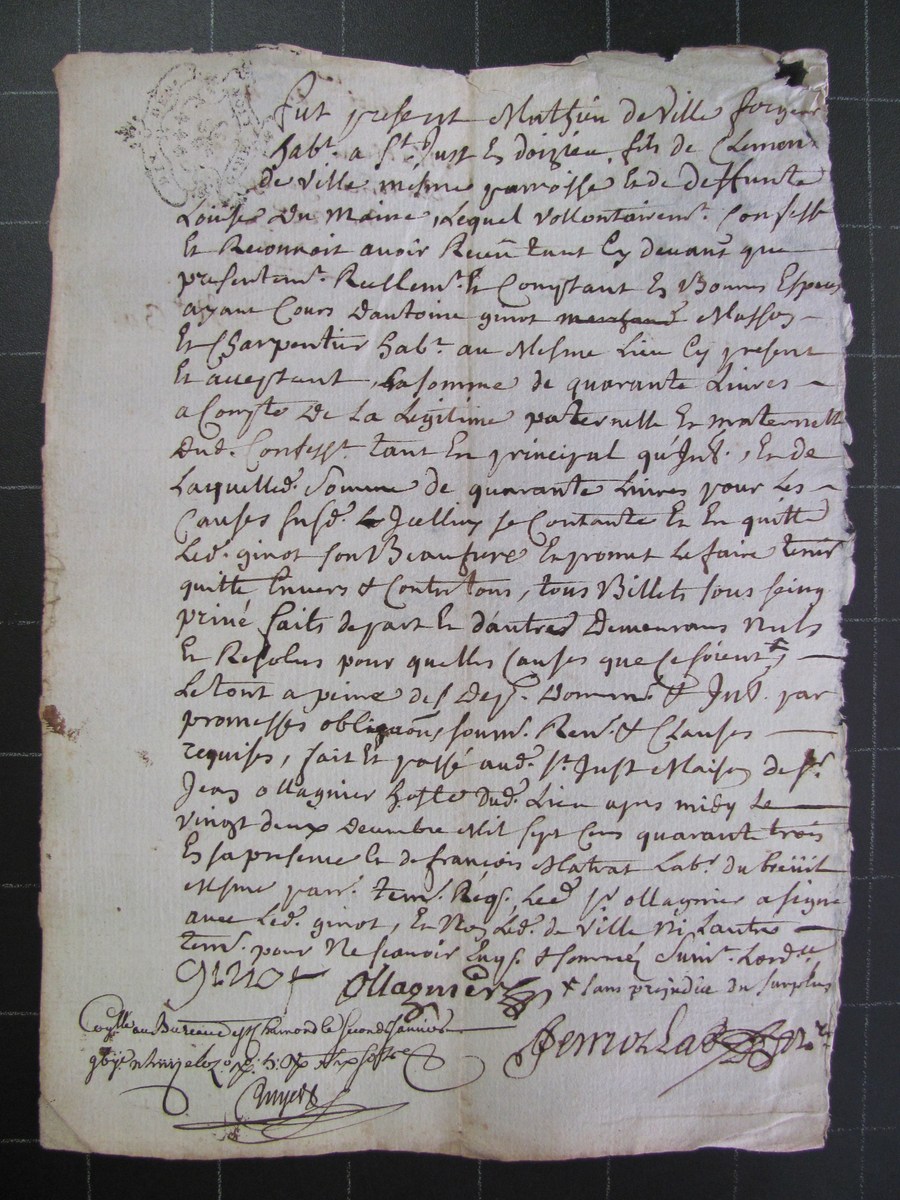 Fut present Mathieu de Ville forgeur
habt. a St. Just En doizieu, fils de Clemen
de Ville mesme parroisse Et de deffunte
Louise Du Maine, Lequel vollontairemt. Confesse
Et Reconnoit avoir Receu tant Cy devant que
presentemt. Reellemt. Et Comptant En Bonnes Especes
ayant Cours D'antoine ginot marchand Masson
Et Charpentier habt. au Mesme Lieu Cy present
Et acceptant, La somme de quarante Livres
a Compte De La Legitime paternelle Et maternelle
Dud. Confesst. tant En principal qu'Int., Et de
Laquelled. Somme de quarante Livres pour Les
Causes susd. Icelluy se Contante Et En quitte
Led. ginot son Beaufrere Et promet Le faire tenir
quitte Envers & Contre tous, tous Billets sous seing
privé faits de part Et d'autres Demeurans Nuls
Et Resolus pour quelles Causes que Ce soient *
Le tout a peine de Dep. Domm. & Int. par
promesses obligaons, soum. Ren. & Clauses
requises, fait Et passé aud. St. Just Maison de Sr.
Jean ollagnier hoste dud. Lieu apres midy Le
vingt deux decembre Mil sept Cens quarante trois
En sa presence Et de françois Matrat Labr. du breüil
Mesme parr. tem. Req. Led. Sr. ollagnier a signé
avec Led. ginot, Et Non Led. de Ville Ni Lautre
tem. pour Ne scavoir Enq. & sommés Suivt. Lord.ce
ginot Ollagnier * sans prejudice du surplus
au Bureau de St. Chamond le second Janvier